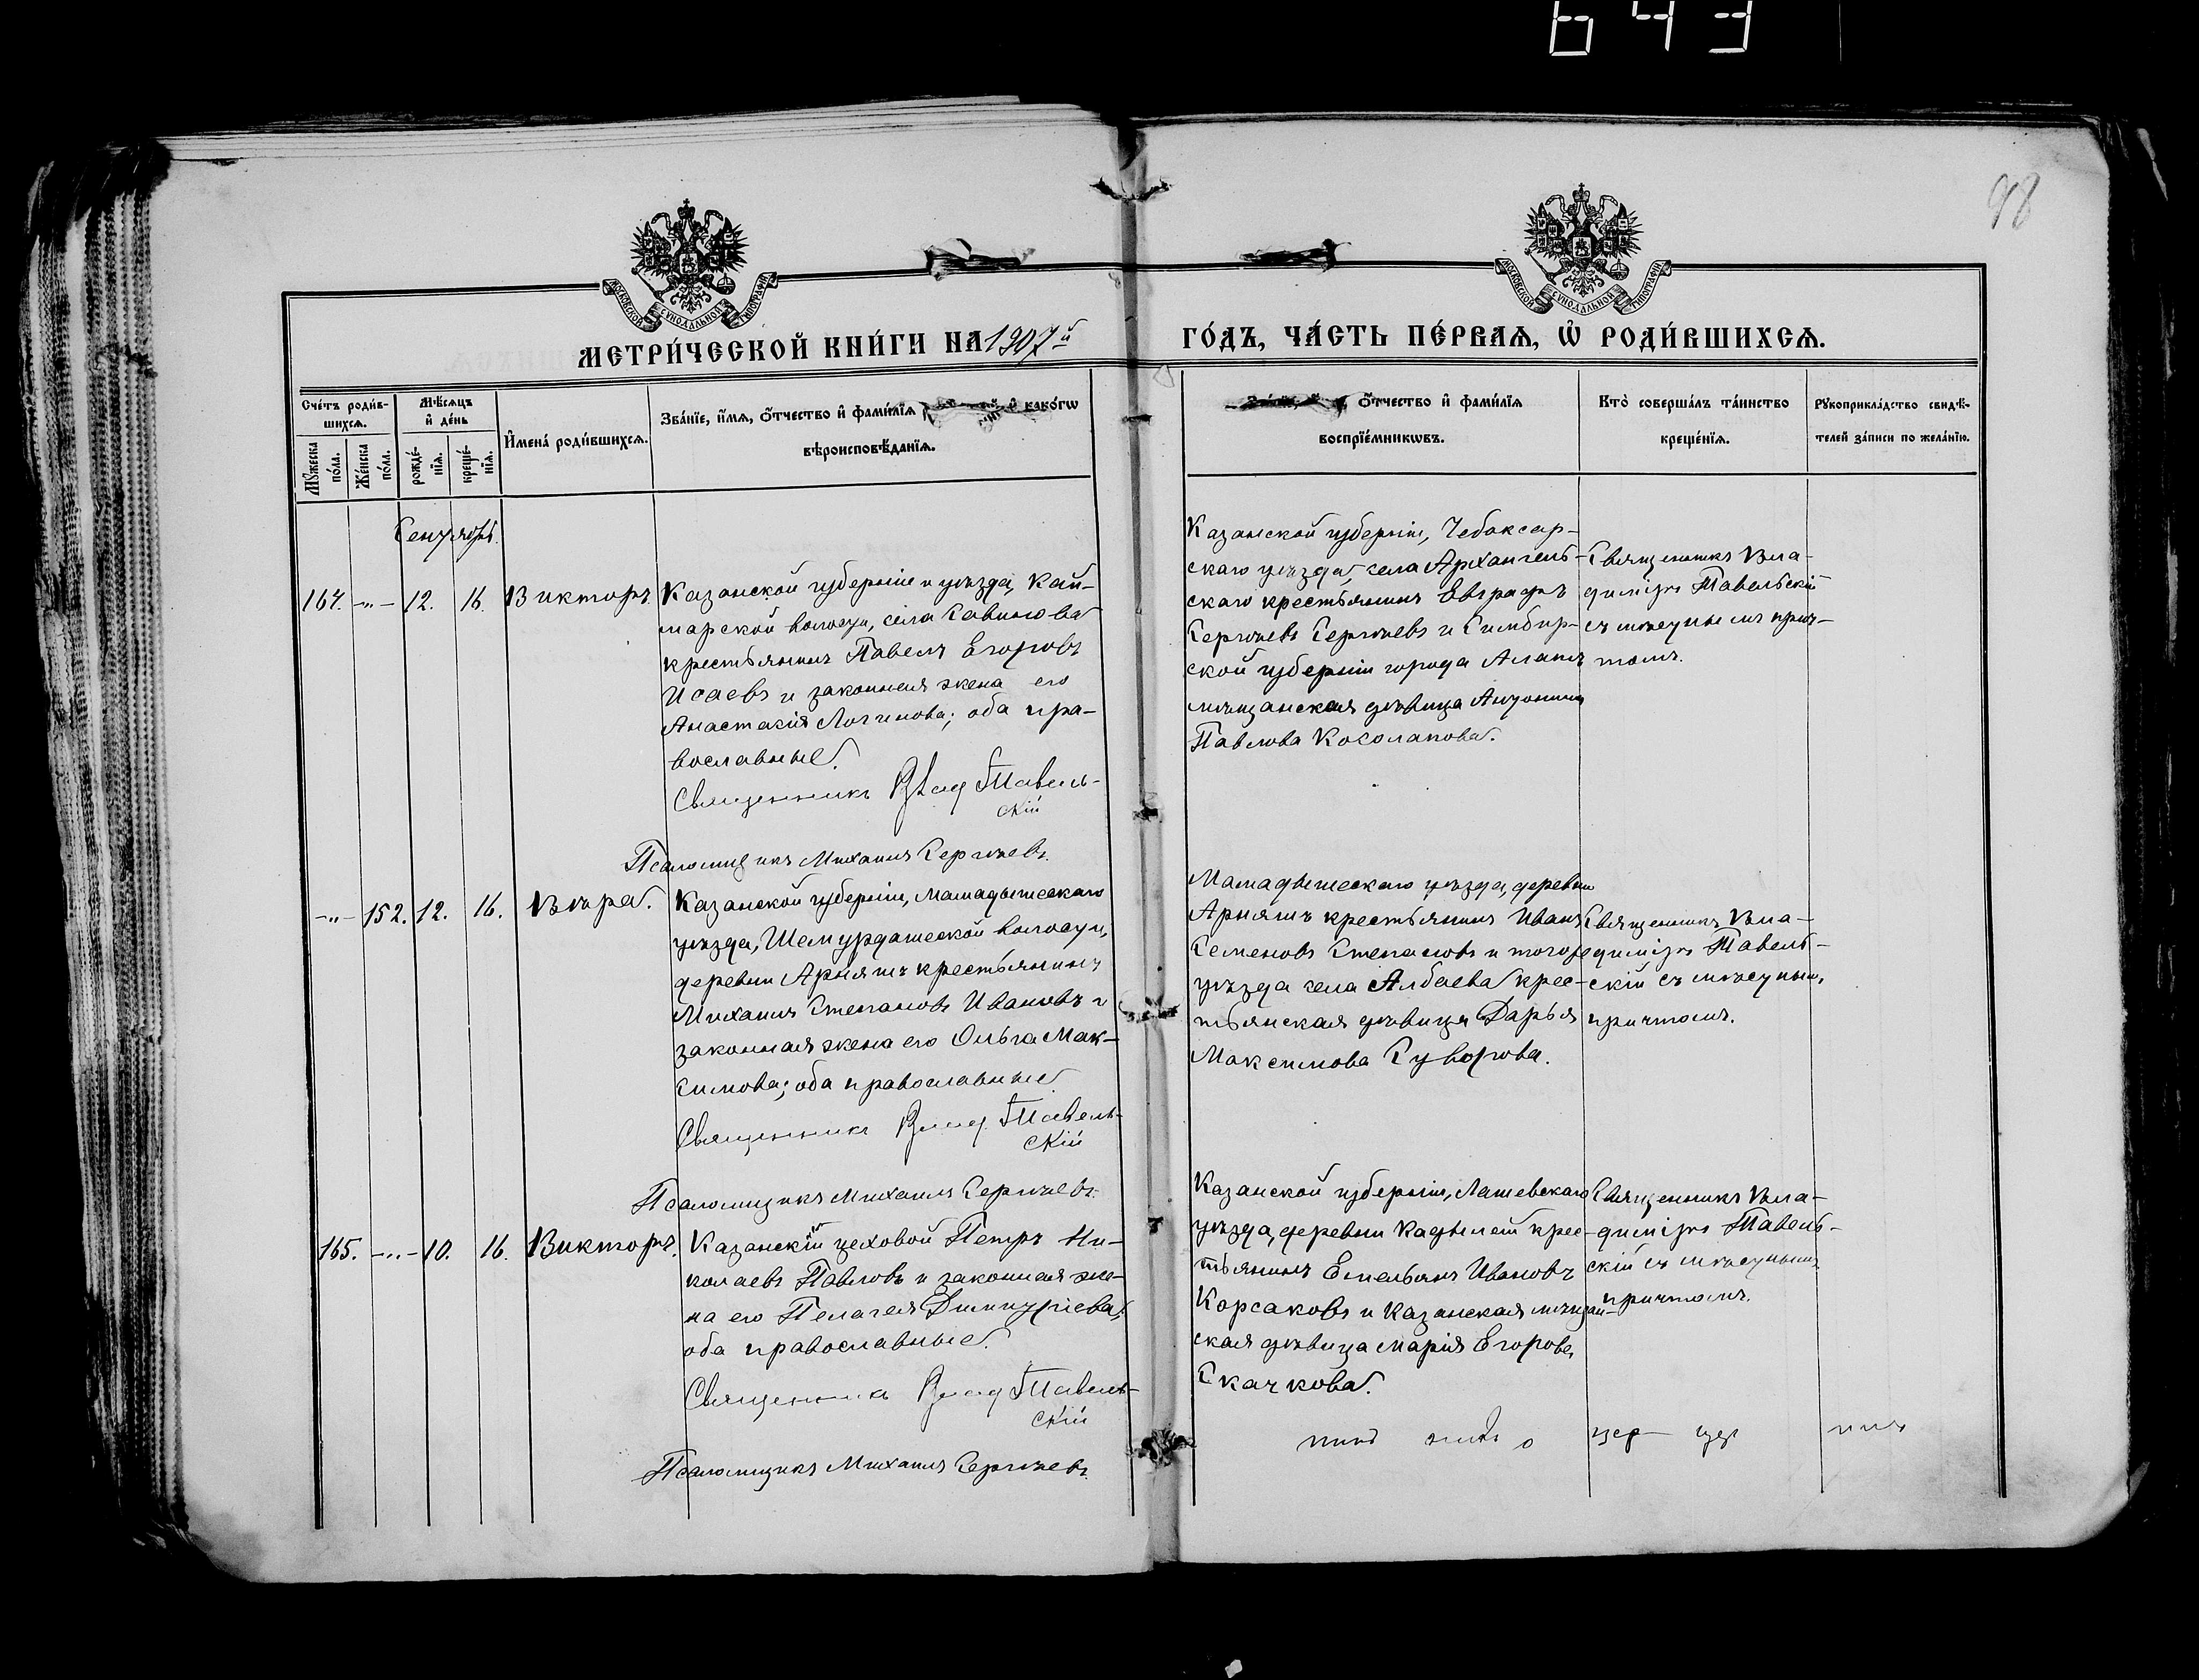 643
98
МОСКОВСКОЙ СѴНОДАЛЬНОЙ ТИПОГРАФІИ
МОСКОВСКОЙ СѴНОДАЛЬНОЙ ТИПОГРАФІИ
МЕТРИ́ЧЕСКОЙ КНИ́ГИ НА 1907й
ГО́ДЪ, ЧА́СТЬ ПЕ́РВАѦ, Ѡ҆ РОДИ́ВШИХСѦ.
Сче́тъ роди́в-
шихсѧ.
Мѣ́сѧцъ
и҆ де́нь
Мꙋжеска по́ла.
Же́нска по́ла.
рожде́-
нїѧ.
креще́-
нїѧ.
И҆мена̀ роди́вшихсѧ.
Зва́нїе, и҆́мѧ, ѻ҆́тчество и҆ фами́лїѧ и҆ како́гѡ
вѣроисповѣ́данїѧ.
ѻ҆́тчество и҆ фами́лїѧ
воспрїе́мникѡвъ.
Кто̀ соверша́лъ та́инство
креще́нїѧ.
Рꙋкоприкла́дство свидѣ́-
телей за́писи по жела́нїю.
Сентябрь.
164. -"- 12. 16. Викторъ.
Казанской губерніи и уѣзда, Кай-
марской волости, села Савинова
крестьянинъ Павелъ Егоровъ
Исаевъ и законная жена его
Анастасія Логинова; оба пра-
вославные.
Священникъ Влад Тавель-
скій
Псаломщикъ Михаилъ Сергѣевъ.
Казанской губерніи, Чебоксар-
скаго уѣзда, села Архангель-
скаго крестьянинъ Евграфъ
Сергѣевъ Сергѣевъ и Симбир-
ской губерніи города Алатъ
мѣщанская дѣвица Антонина
Павлова Косолапова.
Священникъ Вла-
диміръ Тавельскій
съ мѣстнымъ прич-
томъ.
-"- 152. 12. 16. Вѣра.
Казанской губерніи, Мамадышскаго
уѣзда, Шемурдашской волости,
деревни Арняшъ крестьянинъ
Михаилъ Степановъ Ивановъ и
законная жена его Ольга Мак-
симова; оба православные.
Священникъ Влад Тавель-
скій
Псаломщикъ Михаилъ Сергѣевъ.
Мамадышскаго уѣзда, деревни
Арняшъ крестьянинъ Иванъ
Семеновъ Степановъ и того же
уѣзда села Албаева крес-
тьянская дѣвица Дарья
Максимова Суворова.
Священникъ Вла-
диміръ Тавель-
скій съ мѣстнымъ
причтомъ.
165. -"- 10. 16. Викторъ.
Казанскій цеховой Петръ Ни-
колаевъ Павловъ и законная же-
на его Пелагея Димитріева;
оба православные.
Священникъ Влад Тавель-
скій
Псаломщикъ Михаилъ Сергѣевъ.
Казанской губерніи, Лаишевскаго
уѣзда, деревни Кадылей крес-
тьянинъ Емельянъ Ивановъ
Корсаковъ и Казанская мѣщан-
ская дѣвица Марія Егорова
Скачкова.
Священникъ Вла-
диміръ Тавель-
скій съ мѣстнымъ
причтомъ.